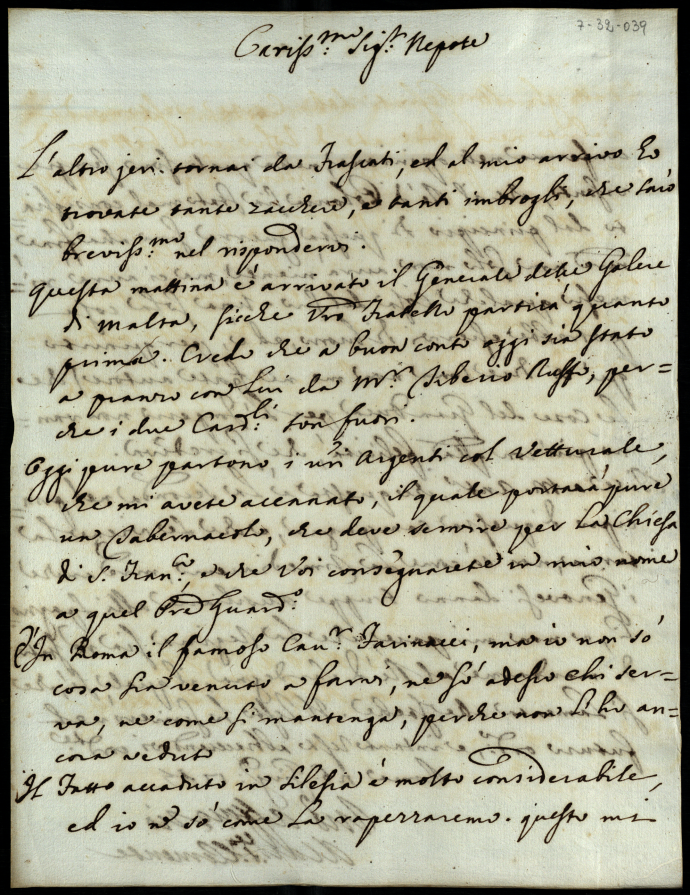 7-32-039
Cariss.mo Sig.r Nepote
L'altro jeri tornai da Frascati, ed al mio arrivo ho
trovate tante zacchere, e tanti imbrogli, che sarò
breviss.mo nel rispondervi.
Questa mattina è arrivato il Generale delle Galere
di Malta, sicche Vro Fratello partirà quanto
prima. Credo che a buon conto oggi sia stato
a pranzo con Lui da Mr. Tiberio Ruffo, per=
che i due Card.li son fuori.
Oggi pure partono i vri Argenti col Vetturale,
che mi avete accennato, il quale portarà pure
un Tabernacolo, che deve servire per La Chiesa
di S. Fran.co, e che Voi consegnarete in mio nome
a quel Pred Guard.o
E' In Roma il famoso Cav.r Farinacci, ma io non sò
cosa sia venuto a farvi, ne sò adesso chi ser=
va, ne come si mantenga, perche non L'ho an=
cora veduto
Il Fatto accaduto in Silesia è molto considerabile,
ed io n sò come La rapezzaremo. questo mi